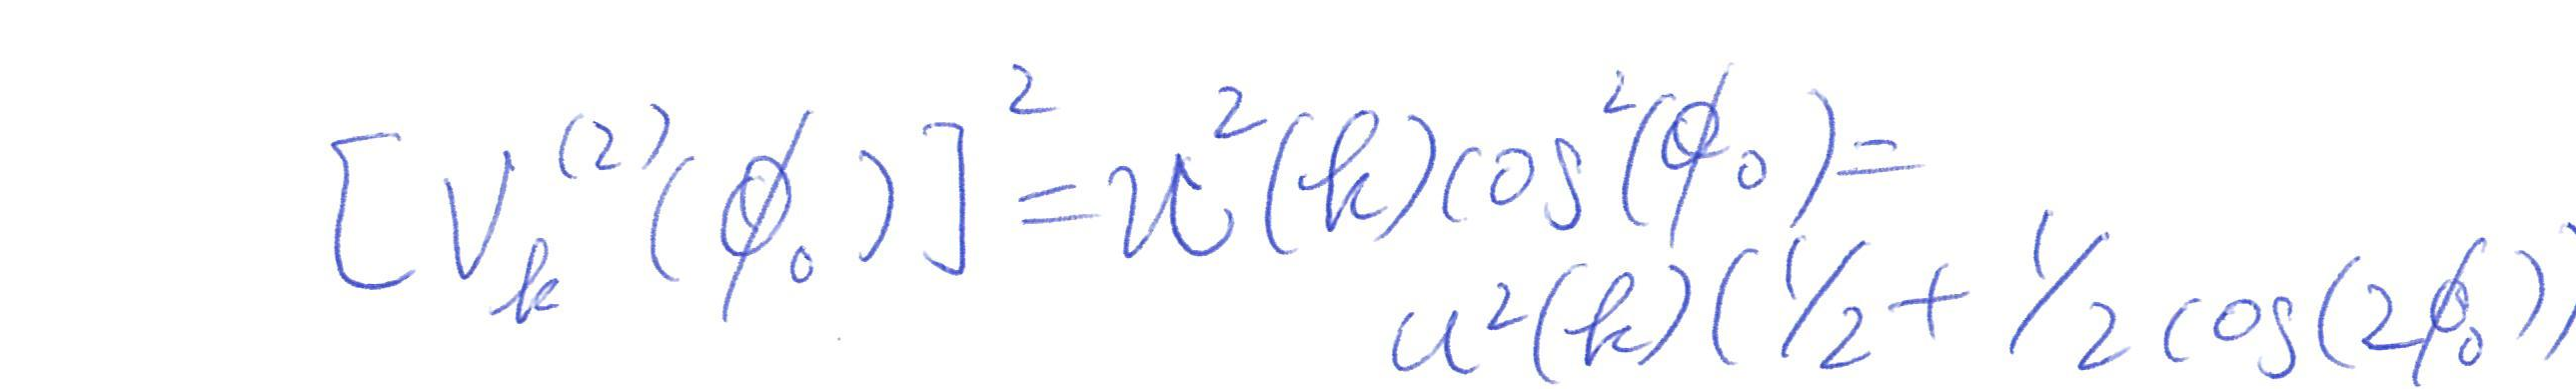 [V_k^(2)(ϕ₀)]² = u²(k)cos²(ϕ₀) =
u²(k)(1/2 + 1/2 cos(2ϕ₀))